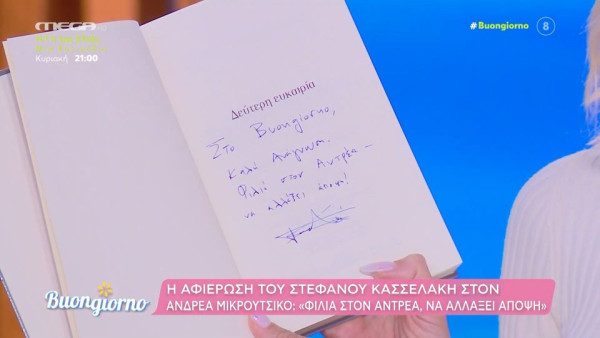 MEGA
Κυριακή 21:00
#Buongiorno
8
Δεύτερη ευκαιρία
Στο Buongiorno,
Καλή Ανάγνωση.
Φιλιά στον Αντρέα –
να αλλάξει άποψη!
Buongiorno
Η ΑΦΙΕΡΩΣΗ ΤΟΥ ΣΤΕΦΑΝΟΥ ΚΑΣΣΕΛΑΚΗ ΣΤΟΝ
ΑΝΔΡΕΑ ΜΙΚΡΟΥΤΣΙΚΟ: «ΦΙΛΙΑ ΣΤΟΝ ΑΝΤΡΕΑ, ΝΑ ΑΛΛΑΞΕΙ ΑΠΟΨΗ»